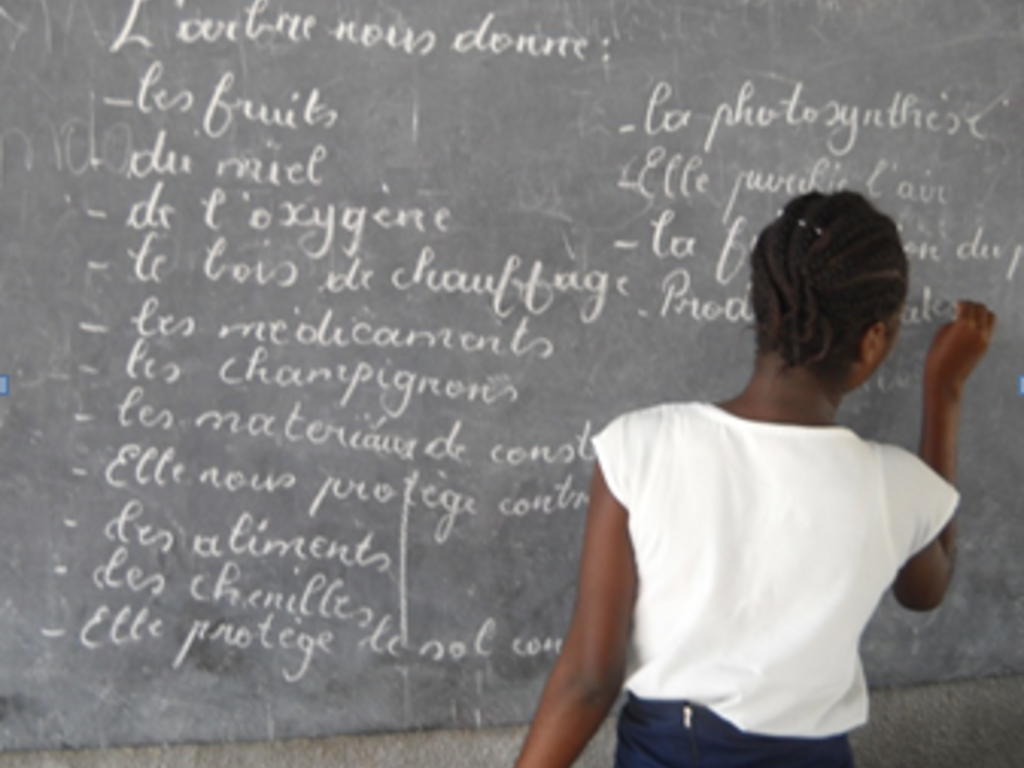 L'arbre nous donne:
- les fruits
- du miel
- de l'oxygène
- le bois de chauffage
- les médicaments
- les champignons
- les materiaux de const
- Elle nous protège contr
- des aliments
- des chenilles
- Elle protège le sol con
- la photosynthèse
- Elle purifie l'air
- la du
. Prod